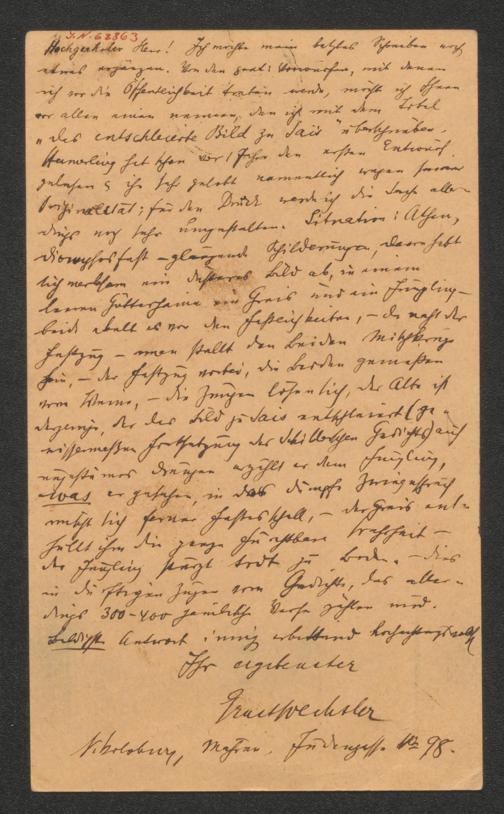 J.N. 62863
Hochgeehrter Herr! Ich möchte mein letztes Schreiben noch
etwas ergänzen. Von den poet: Vorwürfen, mit denen
ich vor die Öffentlichkeit treten werde, möcht ich Ihnen
vor allem einen nennen, den ich mit dem Titel
"das entschleierte Bild zu Sais" überschreibe.
Hamerling hat schon vor 1 Jahr den ersten Entwurf
gelesen & ihn sehr gelobt namentlich wegen seiner
Originalität; für den Druck werde ich die Sache aller-
dings noch sehr umgestalten. Situation: Athen,
Dionysosfest – glänzende Schilderungen, davon hebt
sich wirksam ein düsteres Bild ab, in einem
leeren Götterhaine ein Greis und ein Jüngling –
beide ekelt es vor den Festlichkeiten, – da naht der
Festzug – man stellt den Beiden Mischkrüge
hin, – der Festzug vorbei, die beiden genießen
vom Weine, – die Zungen lösen sich, der Alte ist
derjenige, der das Bild zu Sais entschleiert (ge-
wissermaßen Fortsetzung des Schiller'schen Gedichts) auf
ungestümes Drängen erzählt er dem Jüngling,
was er gesehen, in das dumpfe Zwiegespräch
mischt sich ferner Festesschall, – der Greis ent-
hüllt ihm die ganze furchtbare Wahrheit –
der Jüngling stürzt todt zu Boden. – dies
in dürftigen Zügen vom Gedichte, das aller-
dings 300-400 Verse zählen wird.
Baldigste Antwort innig erbittend hochachtungsvoll
Ihr ergebenster
Ernst Wechsler
Nikolsburg, Mähren, Judengasse No 98.